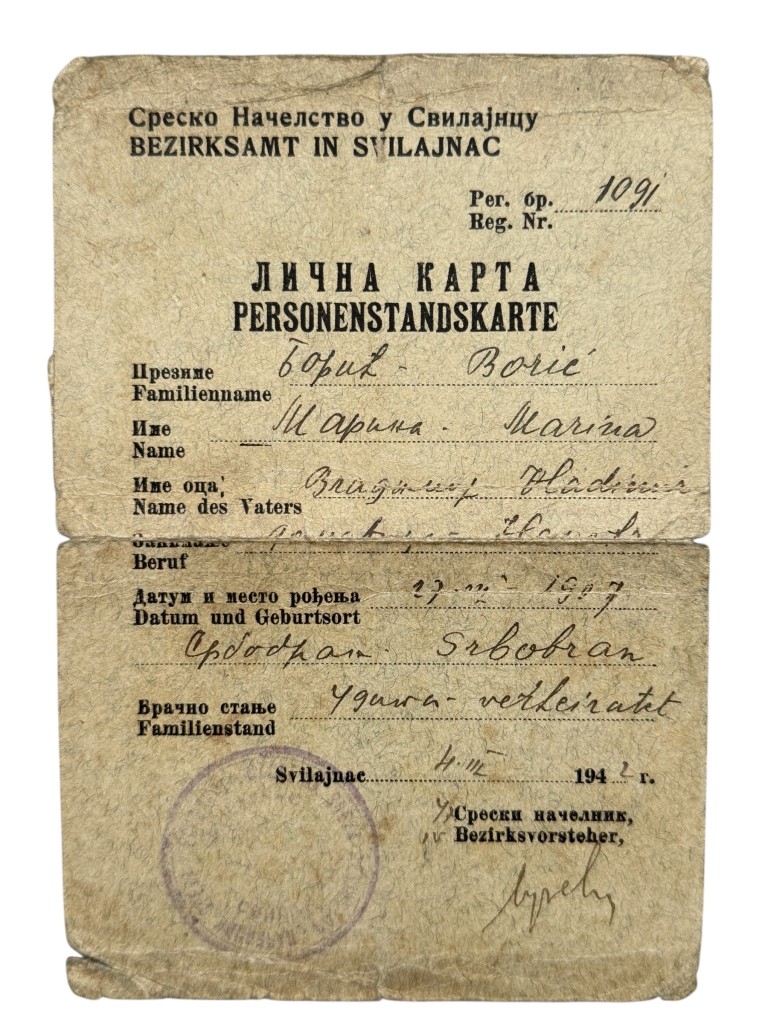 Среско Начелство у Свилајнцу
BEZIRKSAMT IN SVILAJNAC
Рег. бр. 1091
Reg. Nr.
ЛИЧНА КАРТА
PERSONENSTANDSKARTE
Презиме Борић - Borić
Familienname
Име Марина - Marina
Name
Име оца, Владимир Vladimir
Name des Vaters
Занимање
Beruf
Датум и место рођења 27 III 1907
Datum und Geburtsort
Србобран - Srbobran
Брачно стање Удата - verheiratet
Familienstand
Svilajnac 4. III 1942 г.
Срески начелник,
Bezirksvorsteher,